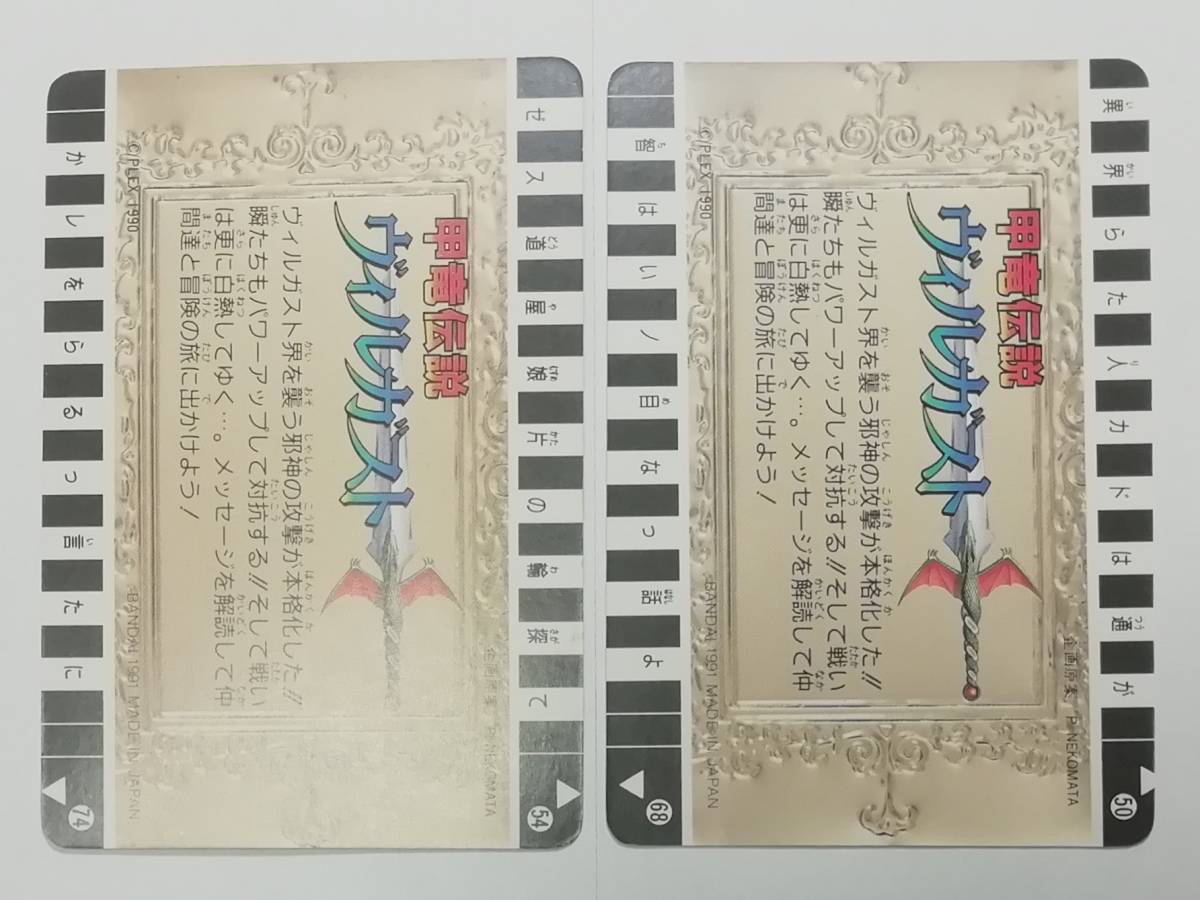 ゼス道屋娘片の輪探て
54
甲竜伝説
ヴィルガスト
ヴィルガスト界を襲う邪神の攻撃が本格化した!!
瞬たちもパワーアップして対抗する!!そして戦い
は更に白熱してゆく…。メッセージを解読して仲
間達と冒険の旅に出かけよう!
©PLEX 1990
企画原案 P・NEKOMATA
BANDAI 1991 MADE IN JAPAN
かレをらるっ言たに
74
異界らた入カドは通が
50
甲竜伝説
ヴィルガスト
ヴィルガスト界を襲う邪神の攻撃が本格化した!!
瞬たちもパワーアップして対抗する!!そして戦い
は更に白熱してゆく…。メッセージを解読して仲
間達と冒険の旅に出かけよう!
©PLEX 1990
企画原案 P・NEKOMATA
BANDAI 1991 MADE IN JAPAN
智はいノ目なっ話よ
68